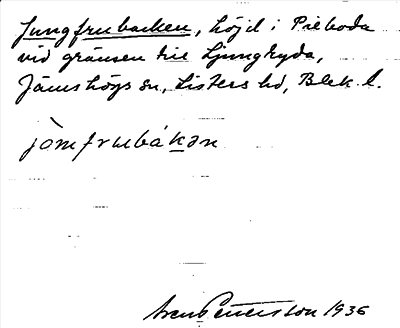 Jungfrubacken, höjd i Pieboda
vid gränsen till Ljungryda,
Jämshögs sn, Listers hd, Blek. l.
jòmfrubákan
Pettersson 1936